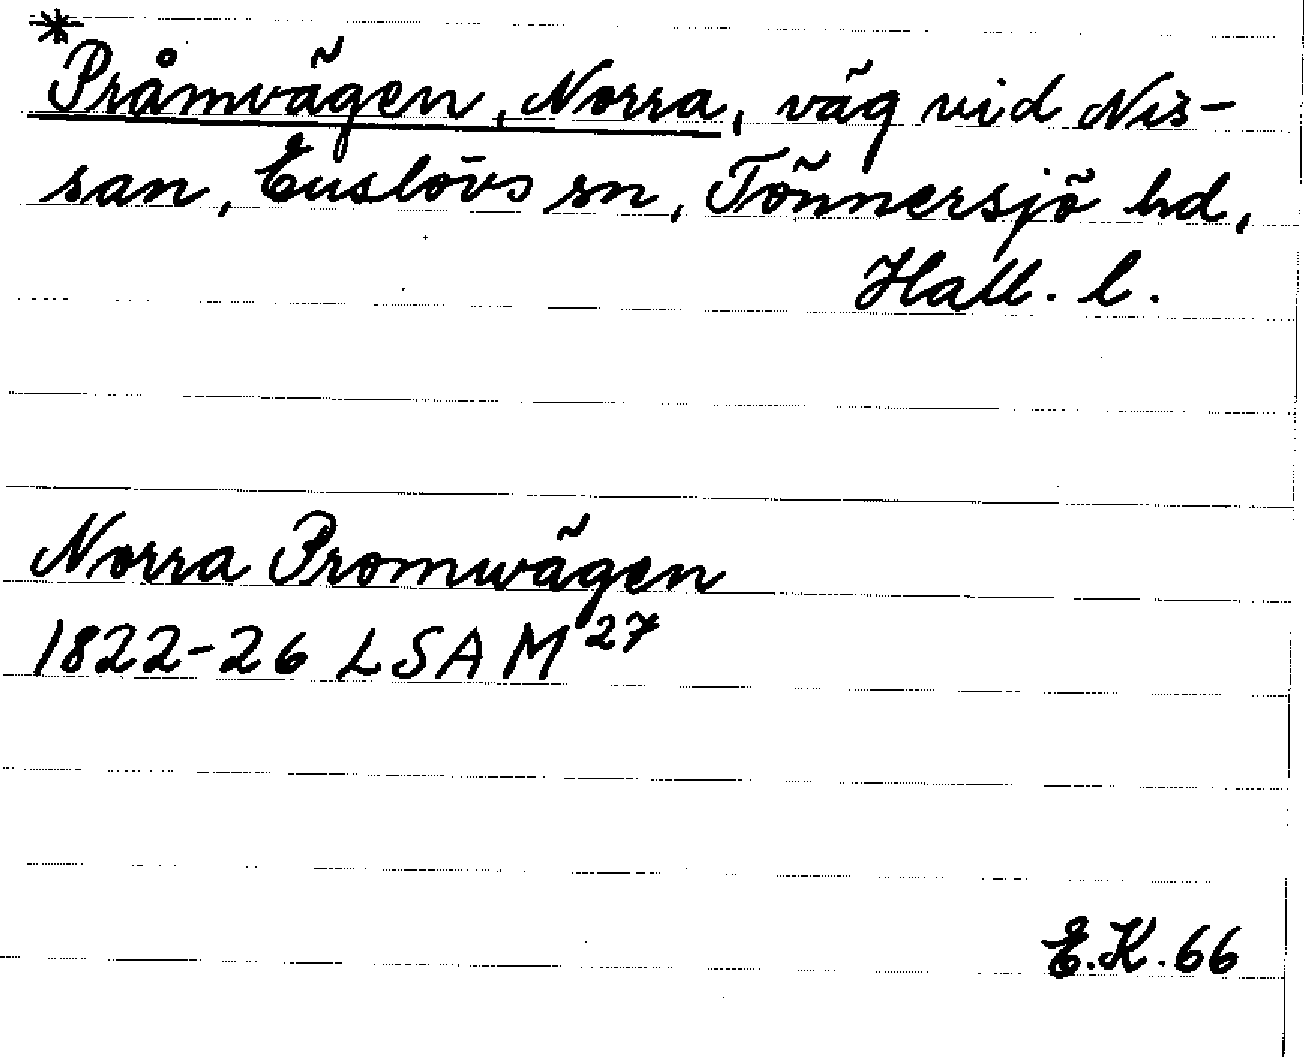 *Pråmvägen, Norra, väg vid Nis-
san, Enslövs sn, Tönnersjö hd,
Hall. l.
Norra Promwägen
1822-26 LSA M 27
E.K. 66